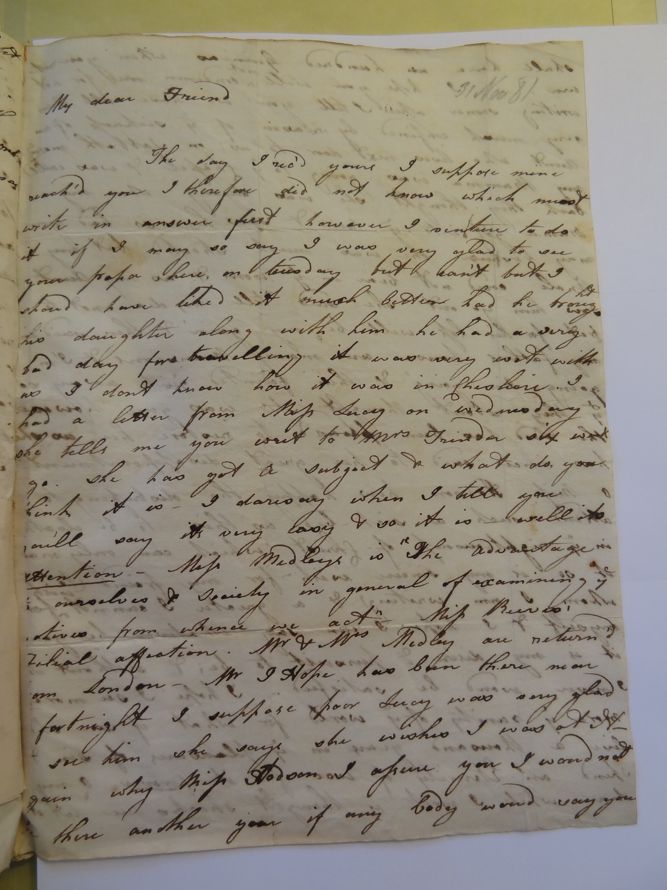 31 Nov 81
My dear Friend
The day I rec'd yours I suppose mine
reach'd you I therefore did not know which must
write in answer first however I venture to do
it if I may so say I was very glad to see
your papa here on tuesday but can't but I
shoud have liked it much better had he brought
his daughter along with him he had a very
bad day for travelling it was very wet with
us I don't know how it was in Cheshire I
had a letter from Miss Lucy on wednesday
she tells me you writ to Mrs six week
go. she has got a subject & what do you
think it is - I daresay when I tell you
you'll say its very easy & so it is - well its
attention - Miss Medleys is "The advantage
to ourselves & society in general of examining ye
motives from whence we act" - Miss Reeves'
Filial affection. Mr & Mrs Medley are return'd
from London - Mr I Hope has been there near
fortnight I suppose poor Lucy was very glad
to see him she says she wishes I was at
again why Miss Hodson I assure you I woud not
there another year if any body woud say you